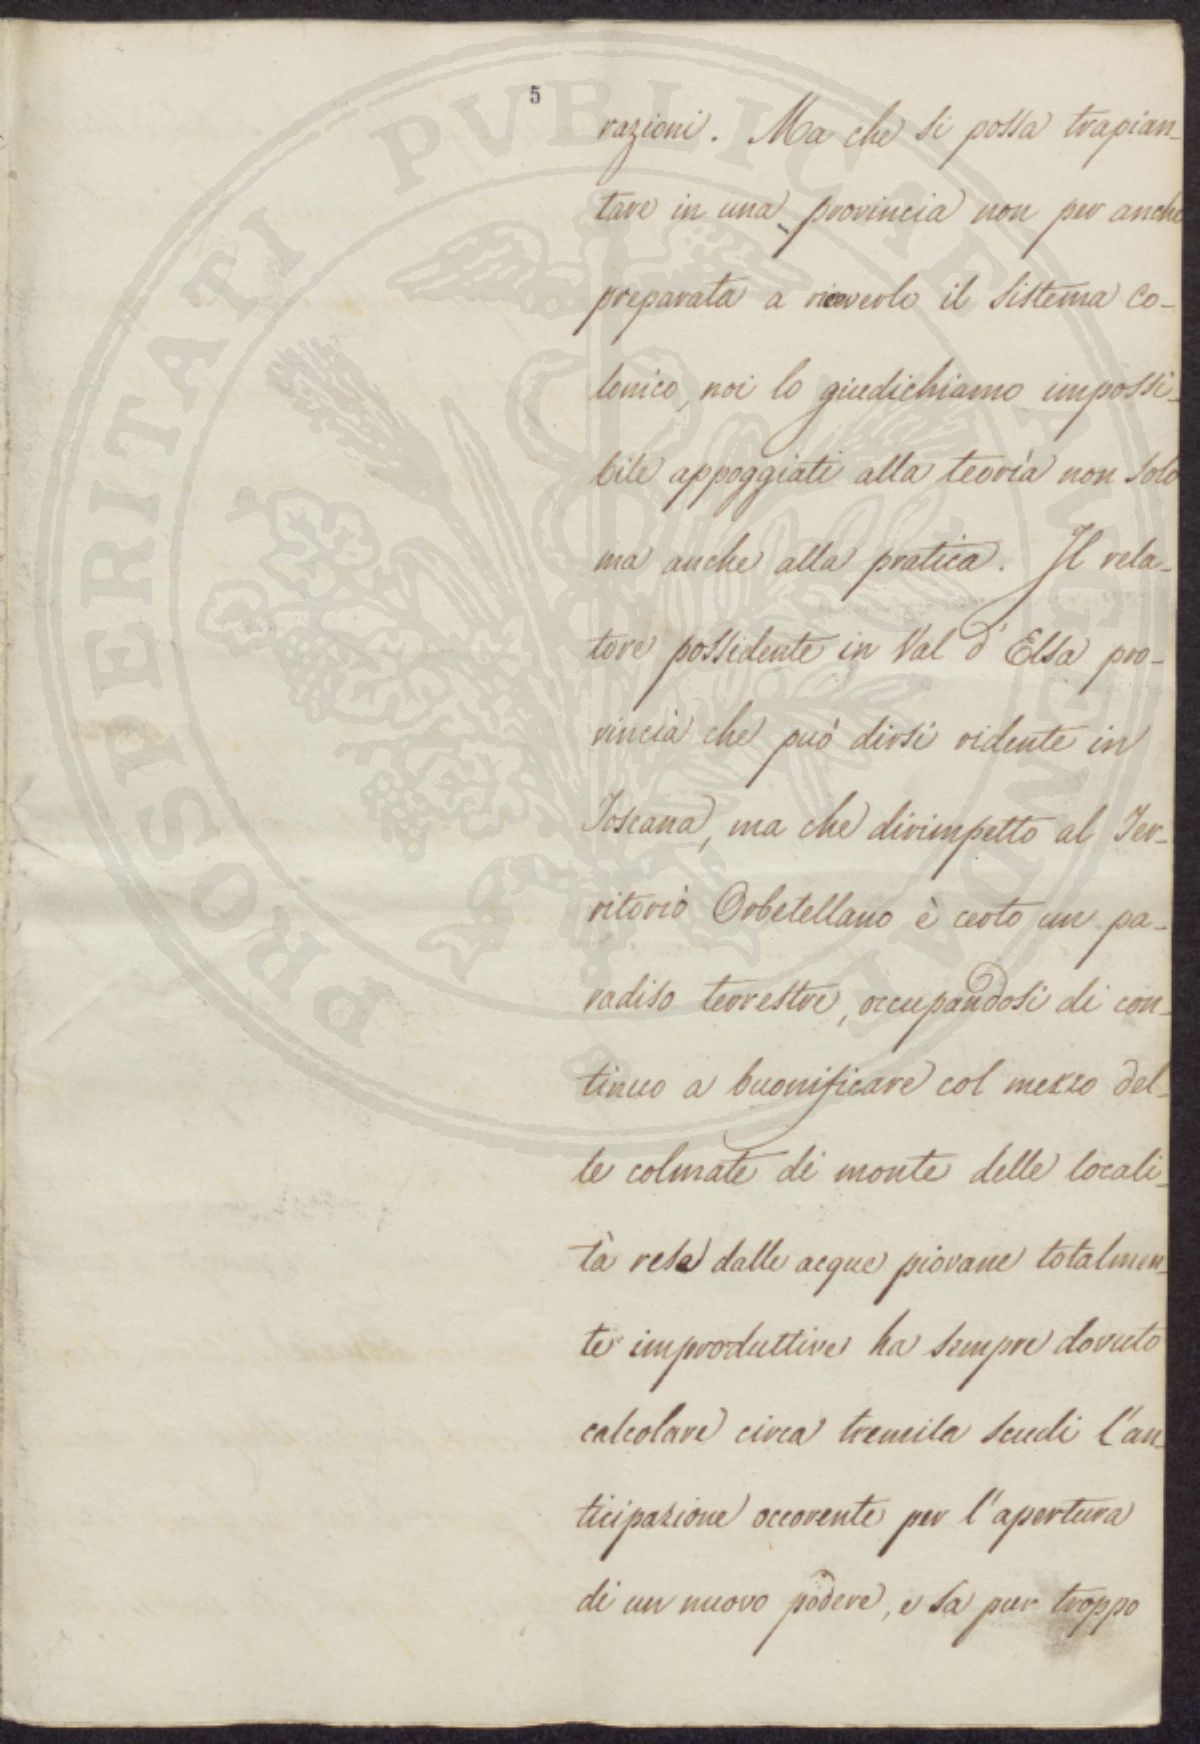 5
razioni. Ma che si possa trapian-
tare in una provincia non per anche
preparata a riceverlo il sistema co-
lonico, noi lo giudichiamo impossi-
bile appoggiati alla teoria non solo
ma anche alla pratica. Il rela-
tore possidente in Val d'Elsa pro-
vincia che può dirsi ridente in
Toscana, ma che dirimpetto al Ter-
ritorio Orbetellano è certo un pa-
radiso terrestre, occupandosi di con-
tinuo a buonificare col mezzo del-
le colmate di monte delle locali-
tà rese dalle acque piovane totalmen-
te improduttive ha sempre dovuto
calcolare circa tremila scudi l'an-
ticipazione occorente per l'apertura
di un nuovo podere, e sa pur troppo
PROSPERITATI PVBLICAE AVGENDAE